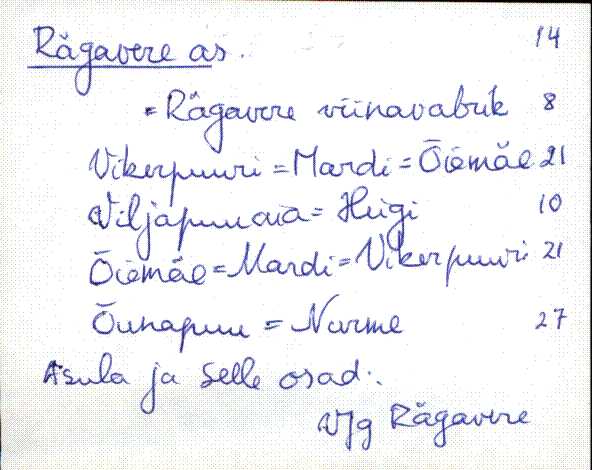 Rägavere as. 14
= Rägavere viinavabrik 8
Vikerpuuri = Mardi = Õiemäe 21
Viljapuuaia = Hiigi 10
Õiemäe = Mardi = Vikerpuuri 21
Õunapuu = Nurme 27
Asula ja selle osad:
V/g Rägavere